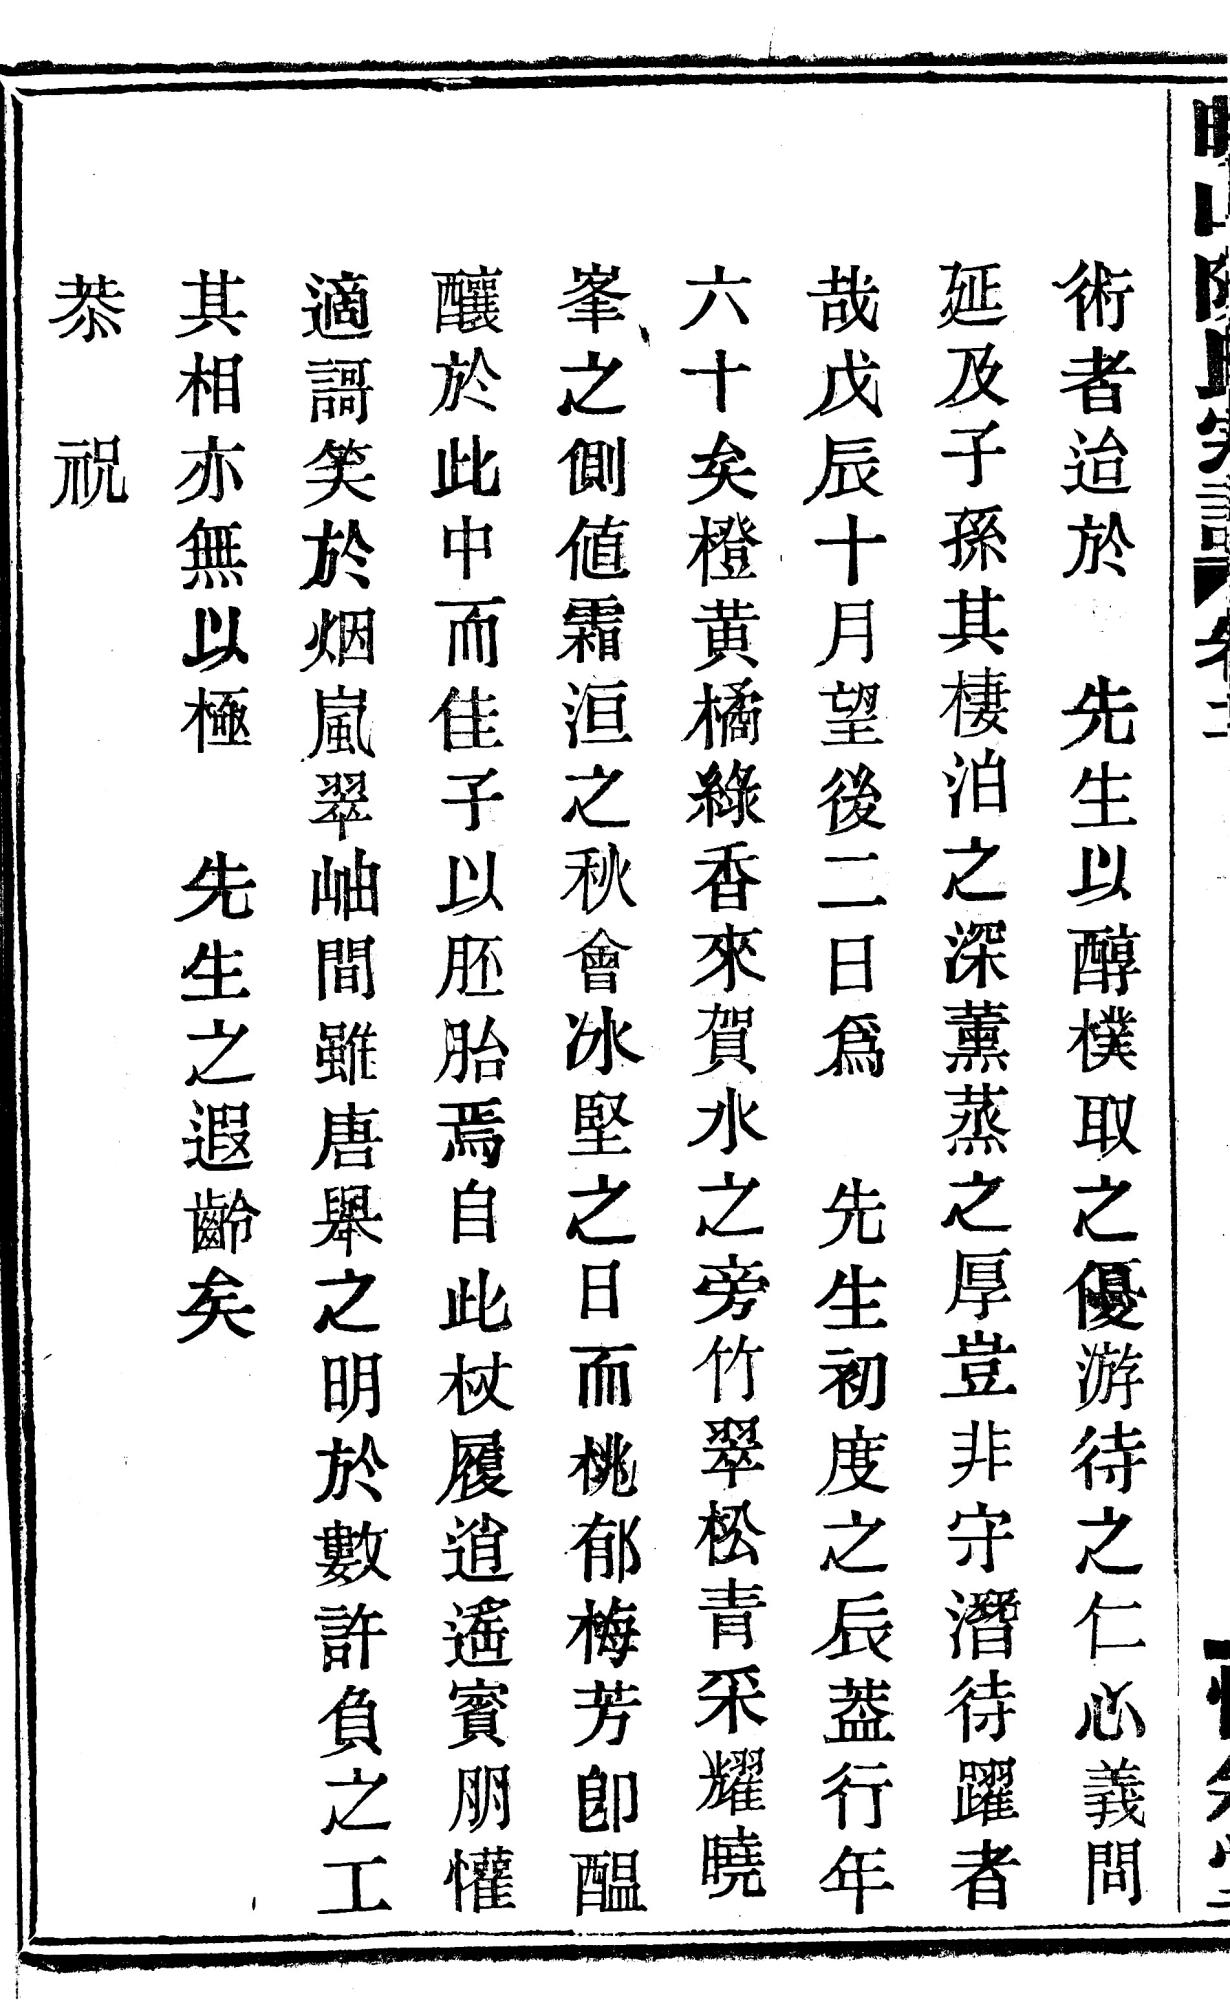 術者迨於　先生以醇樸取之優游待之仁心義問
延及子孫其棲泊之深薰蒸之厚豈非守潛待躍者
哉戊辰十月望後二日爲　先生初度之辰葢行年
六十矣橙黃橘綠香來賀水之旁竹翠松青采耀曉
峯之側値霜洹之秋會冰堅之日而桃郁梅芳卽醞
釀於此中而佳子以胚胎焉自此杖履逍遙賓朋懽
適謌笑於烟嵐翠岫間雖唐舉之明於數許負之工
其相亦無以極　先生之遐齡矣
恭　祝